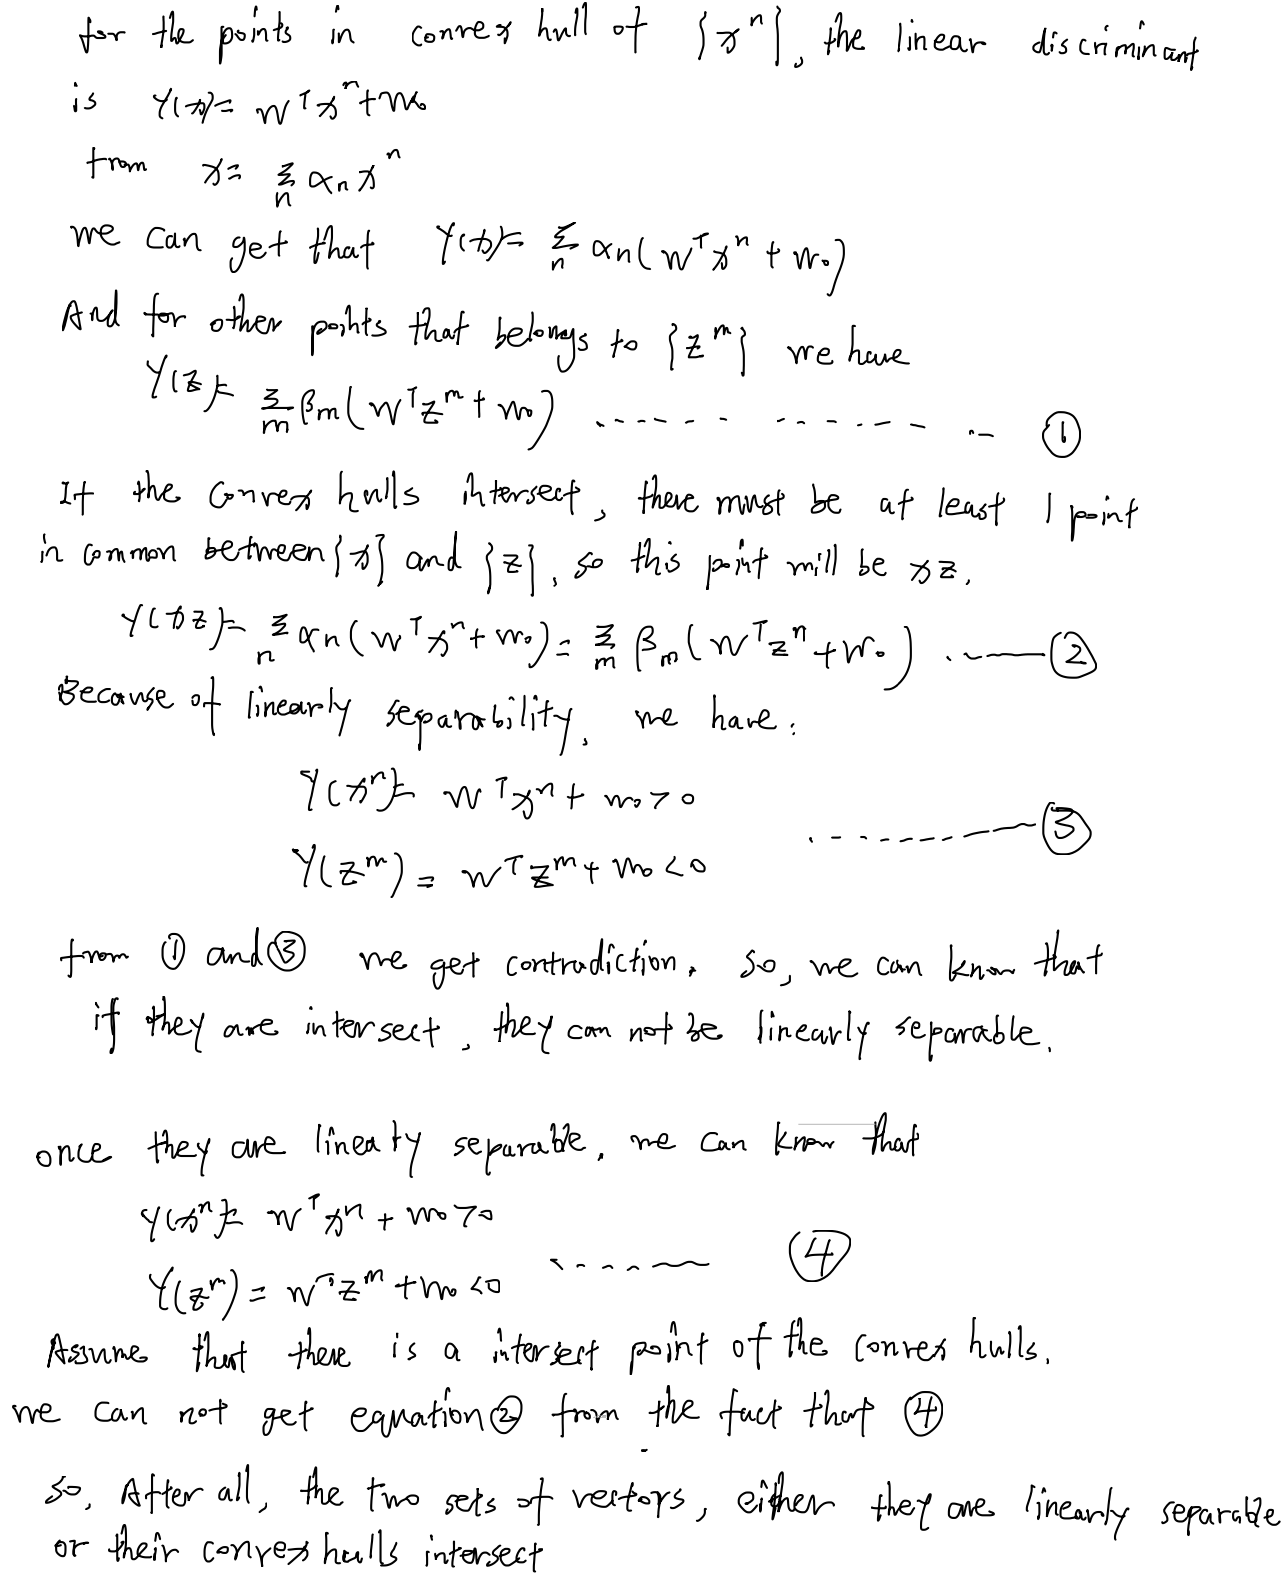 for the points in convex hull of {xⁿ}, the linear discriminant
is Y(x)= wᵀxⁿ+w₀
from x= Σₙ αₙxⁿ
we can get that Y(x)= Σₙ αₙ(wᵀxⁿ + w₀)
And for other points that belongs to {zᵐ} we have
Y(z)= Σₘ βₘ(wᵀzᵐ + w₀) ------ ①
If the convex hulls intersect, there must be at least 1 point
in common between {x} and {z}, so this point will be xz.
Y(xz)= Σₙ αₙ(wᵀxⁿ+w₀)= Σₘ βₘ(wᵀzⁿ+w₀) ------ ②
Because of linearly separability, we have:
Y(xⁿ)= wᵀxⁿ + w₀>0
------ ③
Y(zᵐ) = wᵀzᵐ + w₀<0
from ① and ③ we get contradiction. So, we can know that
if they are intersect, they can not be linearly separable.
once they are linearly separable, we can know that
Y(xⁿ)= wᵀxⁿ + w₀>0
------ ④
Y(zᵐ) = wᵀzᵐ + w₀<0
Assume that there is a intersect point of the convex hulls.
we can not get equation② from the fact that ④
So, After all, the two sets of vectors, either they are linearly separable
or their convex hulls intersect